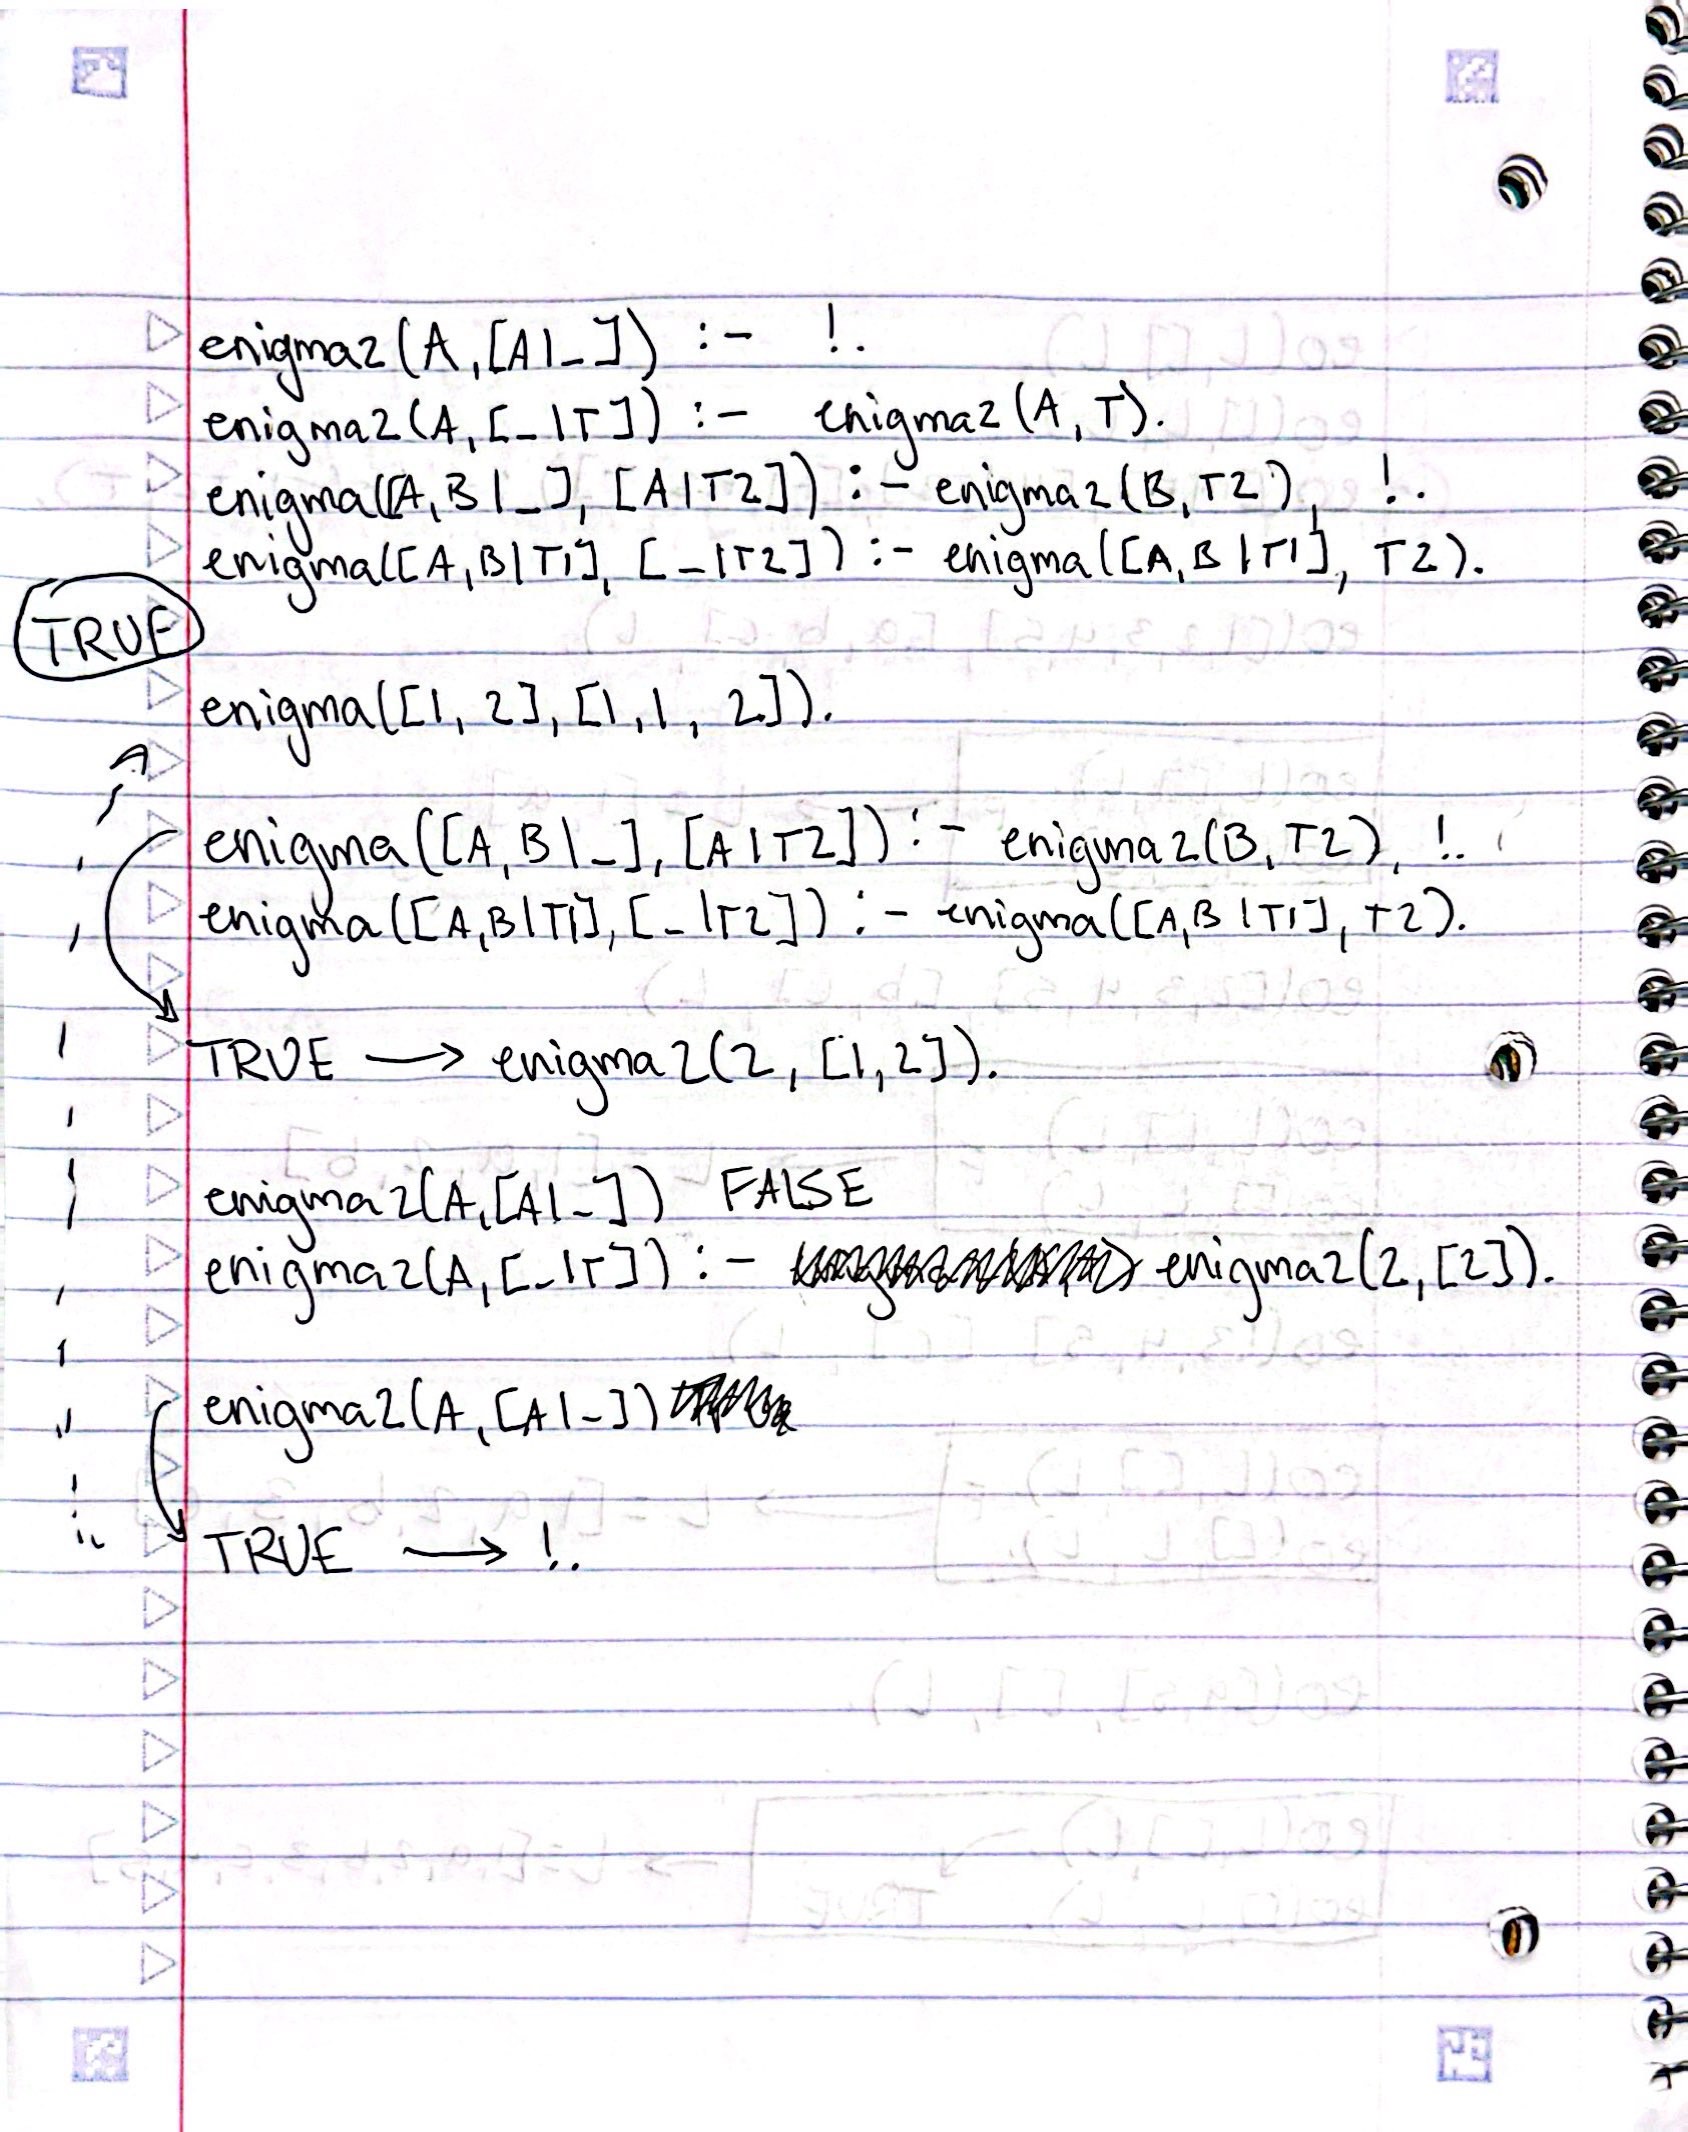 enigma2(A,[A|_]) :- !.
enigma2(A,[_|T]) :- enigma2(A,T).
enigma([A,B|_],[A|T2]) :- enigma2(B,T2), !.
enigma([A,B|T1],[_|T2]) :- enigma([A,B|T1], T2).
TRUE
enigma([1, 2],[1,1, 2]).
enigma([A,B|_],[A|T2]) :- enigma2(B,T2), !.
enigma([A,B|T1],[_|T2]) :- enigma([A,B|T1],T2).
TRUE → enigma2(2,[1,2]).
enigma2(A,[A|_]) FALSE
enigma2(A,[_|T]) :- enigma2(2,[2]).
enigma2(A,[A|_])
TRUE → !.